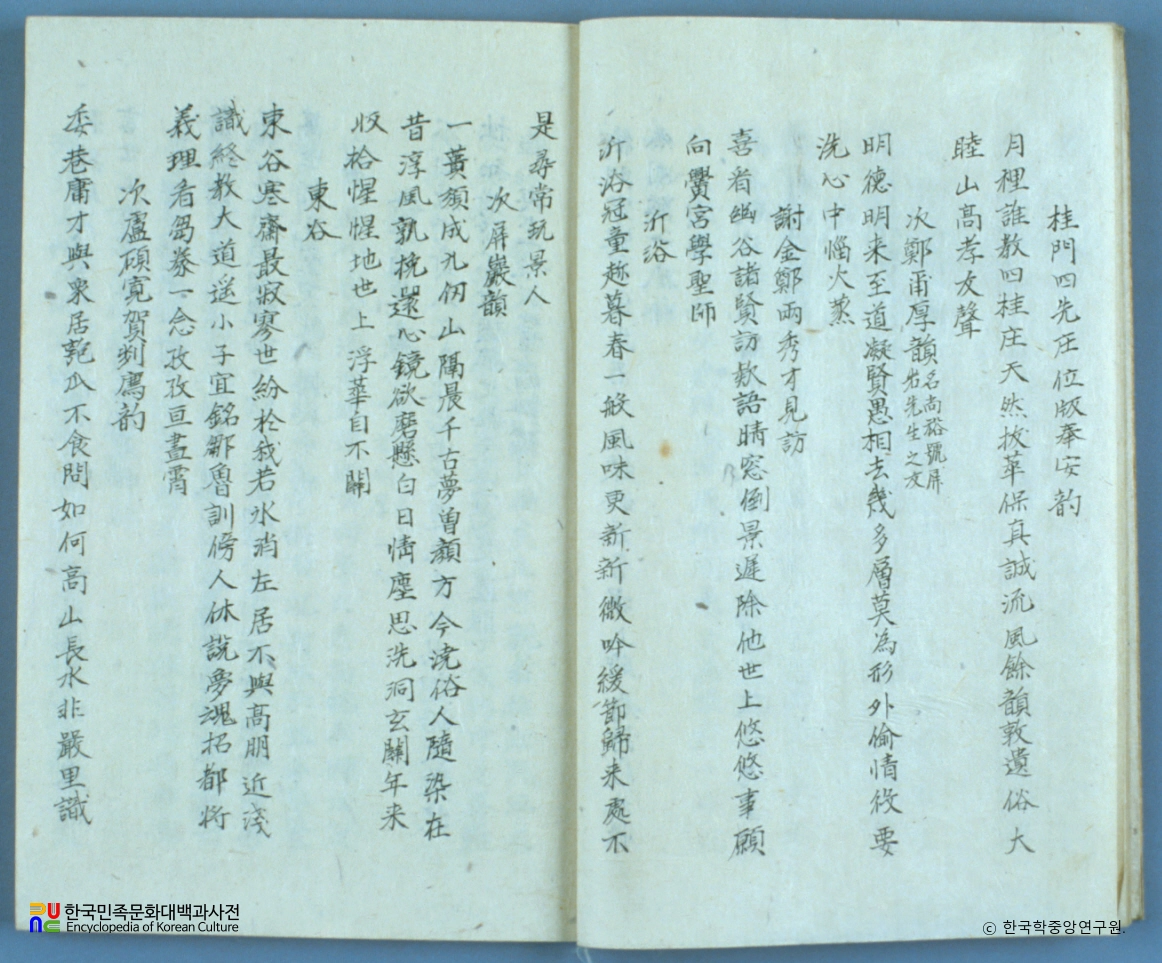 桂門四先庄位版奉安韵
月裡誰教四桂庄天然拔華保真誠流風餘韻敦遺俗大
睦山高孝友聲
次鄭甫厚韻名尚裕號屏岩先生之友
明德明来至道凝賢愚相去幾多層莫為形外偷情役要
洗心中惱火蒸
謝金鄭兩秀才見訪
喜看幽谷諸賢訪欵語晴窓倒景遲除他世上悠悠事願
向黌宮學聖師
沂浴
沂浴冠童趂暮春一般風味更新新微吟緩節歸来處不
是尋常玩景人
次屏巖韻
一蕢頹成九仞山隔晨千古夢曾顏方今澆俗人隨染在
昔淳風孰挽還心鏡欲磨懸白日情塵思洗洞玄關年来
收拾惺惺地世上浮華自不關
東谷
東谷寒齋最寂寥世紛於我若氷消左居不與高朋近淺
識終教大道迷小子宜銘鄒魯訓傍人休說夢魂招都将
義理看芻豢一念孜孜亘晝宵
次盧碩寬賀剡薦韵
委巷庸才與衆居匏瓜不食問如何高山長水非嚴里識
한국민족문화대백과사전
Encyclopedia of Korean Culture
ⓒ 한국학중앙연구원.